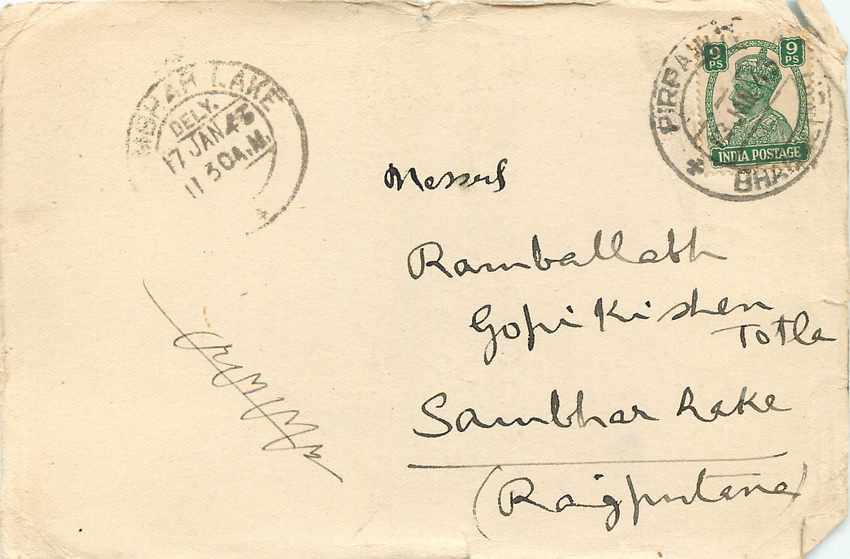 SAMBHAR LAKE
DELY.
17 JAN 45
11 30 A.M.
9 PS
9 PS
INDIA POSTAGE
Messrs
Ramballabh
Gopi Kishen
Totla
Sambhar Lake
(Rajputana)